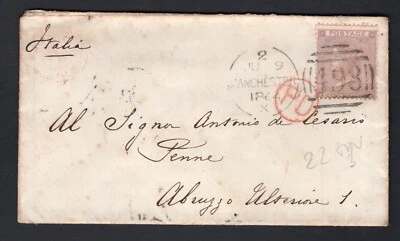 POSTAGE
Italia
2
JU 9
MANCHESTER
186
498
PD
Al Signor Antonio de Cesaris
Penne
Abruzzo Ulteriore 1.
22